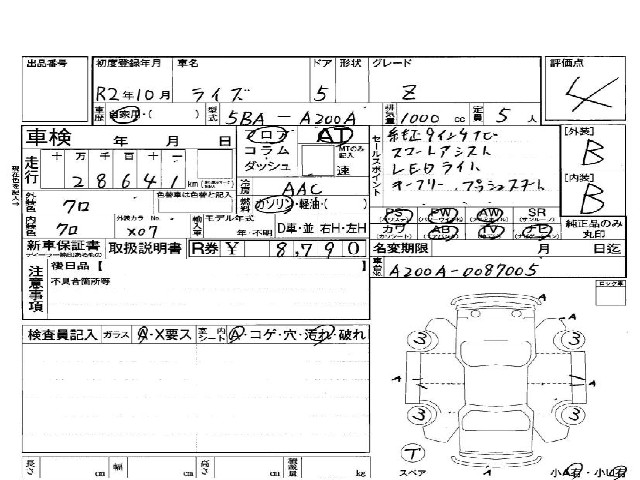 出品番号 初度登録年月 車名 ドア 形状 グレード 評価点
R2年10月 ライズ 5 Z 4
車歴 自家用・( ) 型式 5BA-A200A 排気量 1000 cc 定員 5 人
車検 年 月 日
フロア AT
コラム MTのみ記入
ダッシュ 速
セールスポイント
純正9インチナビ
スマートアシスト
LEDライト
オーフリー、プッシュスタート
[外装] B
[内装] B
現在色を記入→
走行 十 万 千 百 十 一
28641 km
冷房 AAC
外装色 クロ 色替車は色替と記入
燃料 ガソリン・軽油・( )
内装色 クロ 外装カラーNo. X07
輸入車 モデル年式 年・不明 D車・並 右H・左H
PS PW AW SR
カワ AB TV ナビ
純正品のみ丸印
新車保証書 取扱説明書 R券 ¥ 8,790
名変期限 月 日迄
車台No. A200A-0087005
注意事項
後日品【
不具合箇所等
ロック車
検査員記入 ガラス A・X要ス 室内シート A・コゲ・穴・汚れ・破れ
A
3 3
A A
3 3
T
スペア A 小A有・小U有
長さ cm 幅 cm 高さ cm 積載量 kg